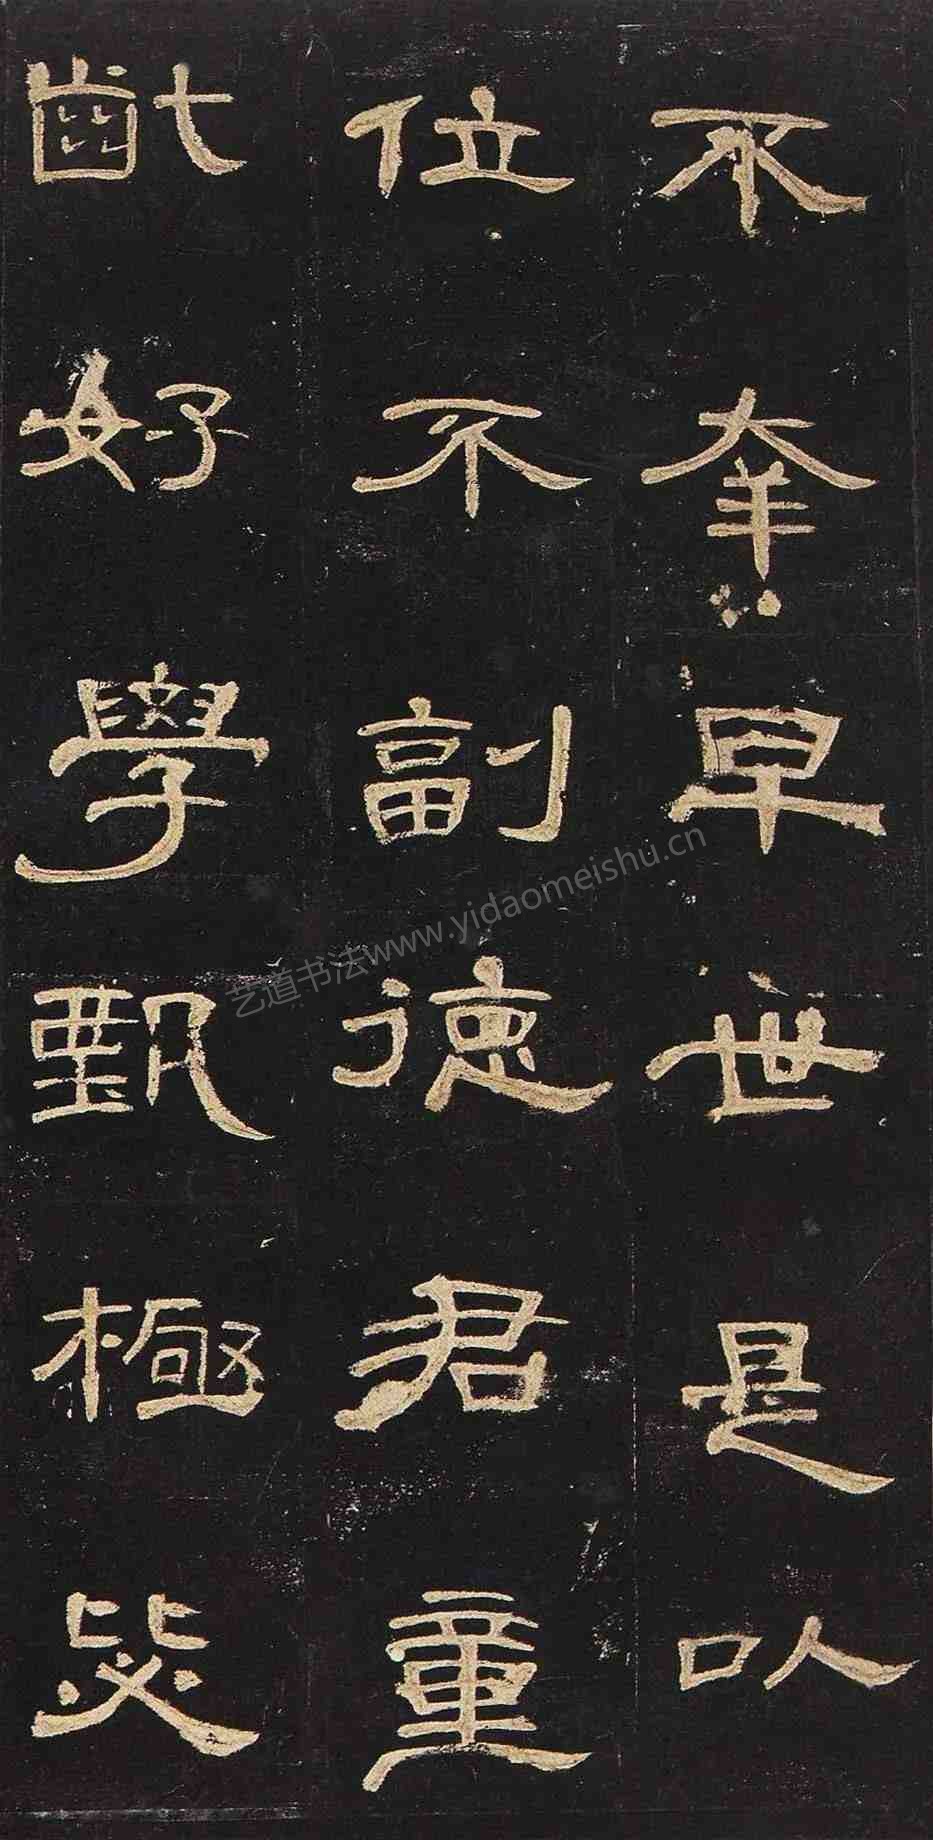 不夆早世是以
位不副德君童
齔好學甄極毖
艺道书法www.yidaomeishu.cn